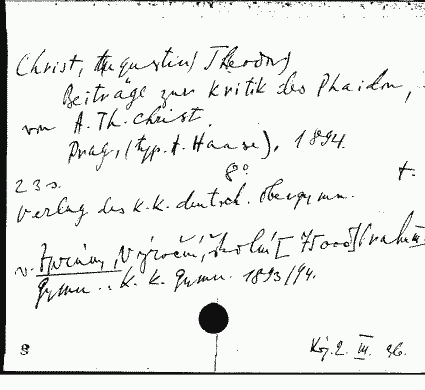 Christ, Augustin Theodor
Beiträge zur Kritik des Phaidon,
von A. Th. Christ.
Prag, (typ. A. Haase), 1894.
8° t.
23 s.
Verlag des k. k. deutsch. Obergymn.
v. výroční, školní [75000] Prah III.
Gymn. k. k. Gymn. 1893/94.
8 2. III. 46.